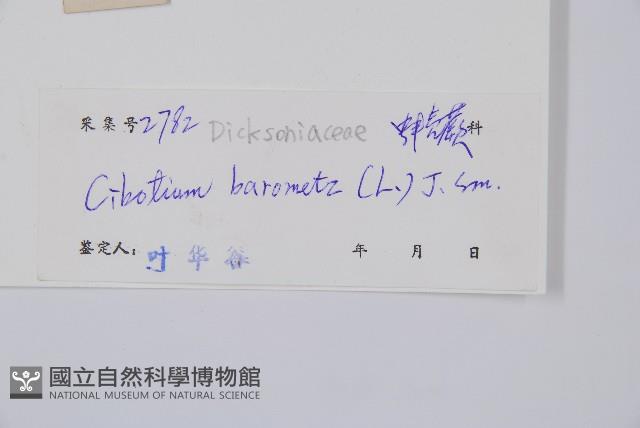 采集号2782 Dicksoniaceae 蚌壳蕨科
Cibotium barometz (L.) J. Sm.
鉴定人: 叶华谷 年 月 日
國立自然科學博物館
NATIONAL MUSEUM OF NATURAL SCIENCE